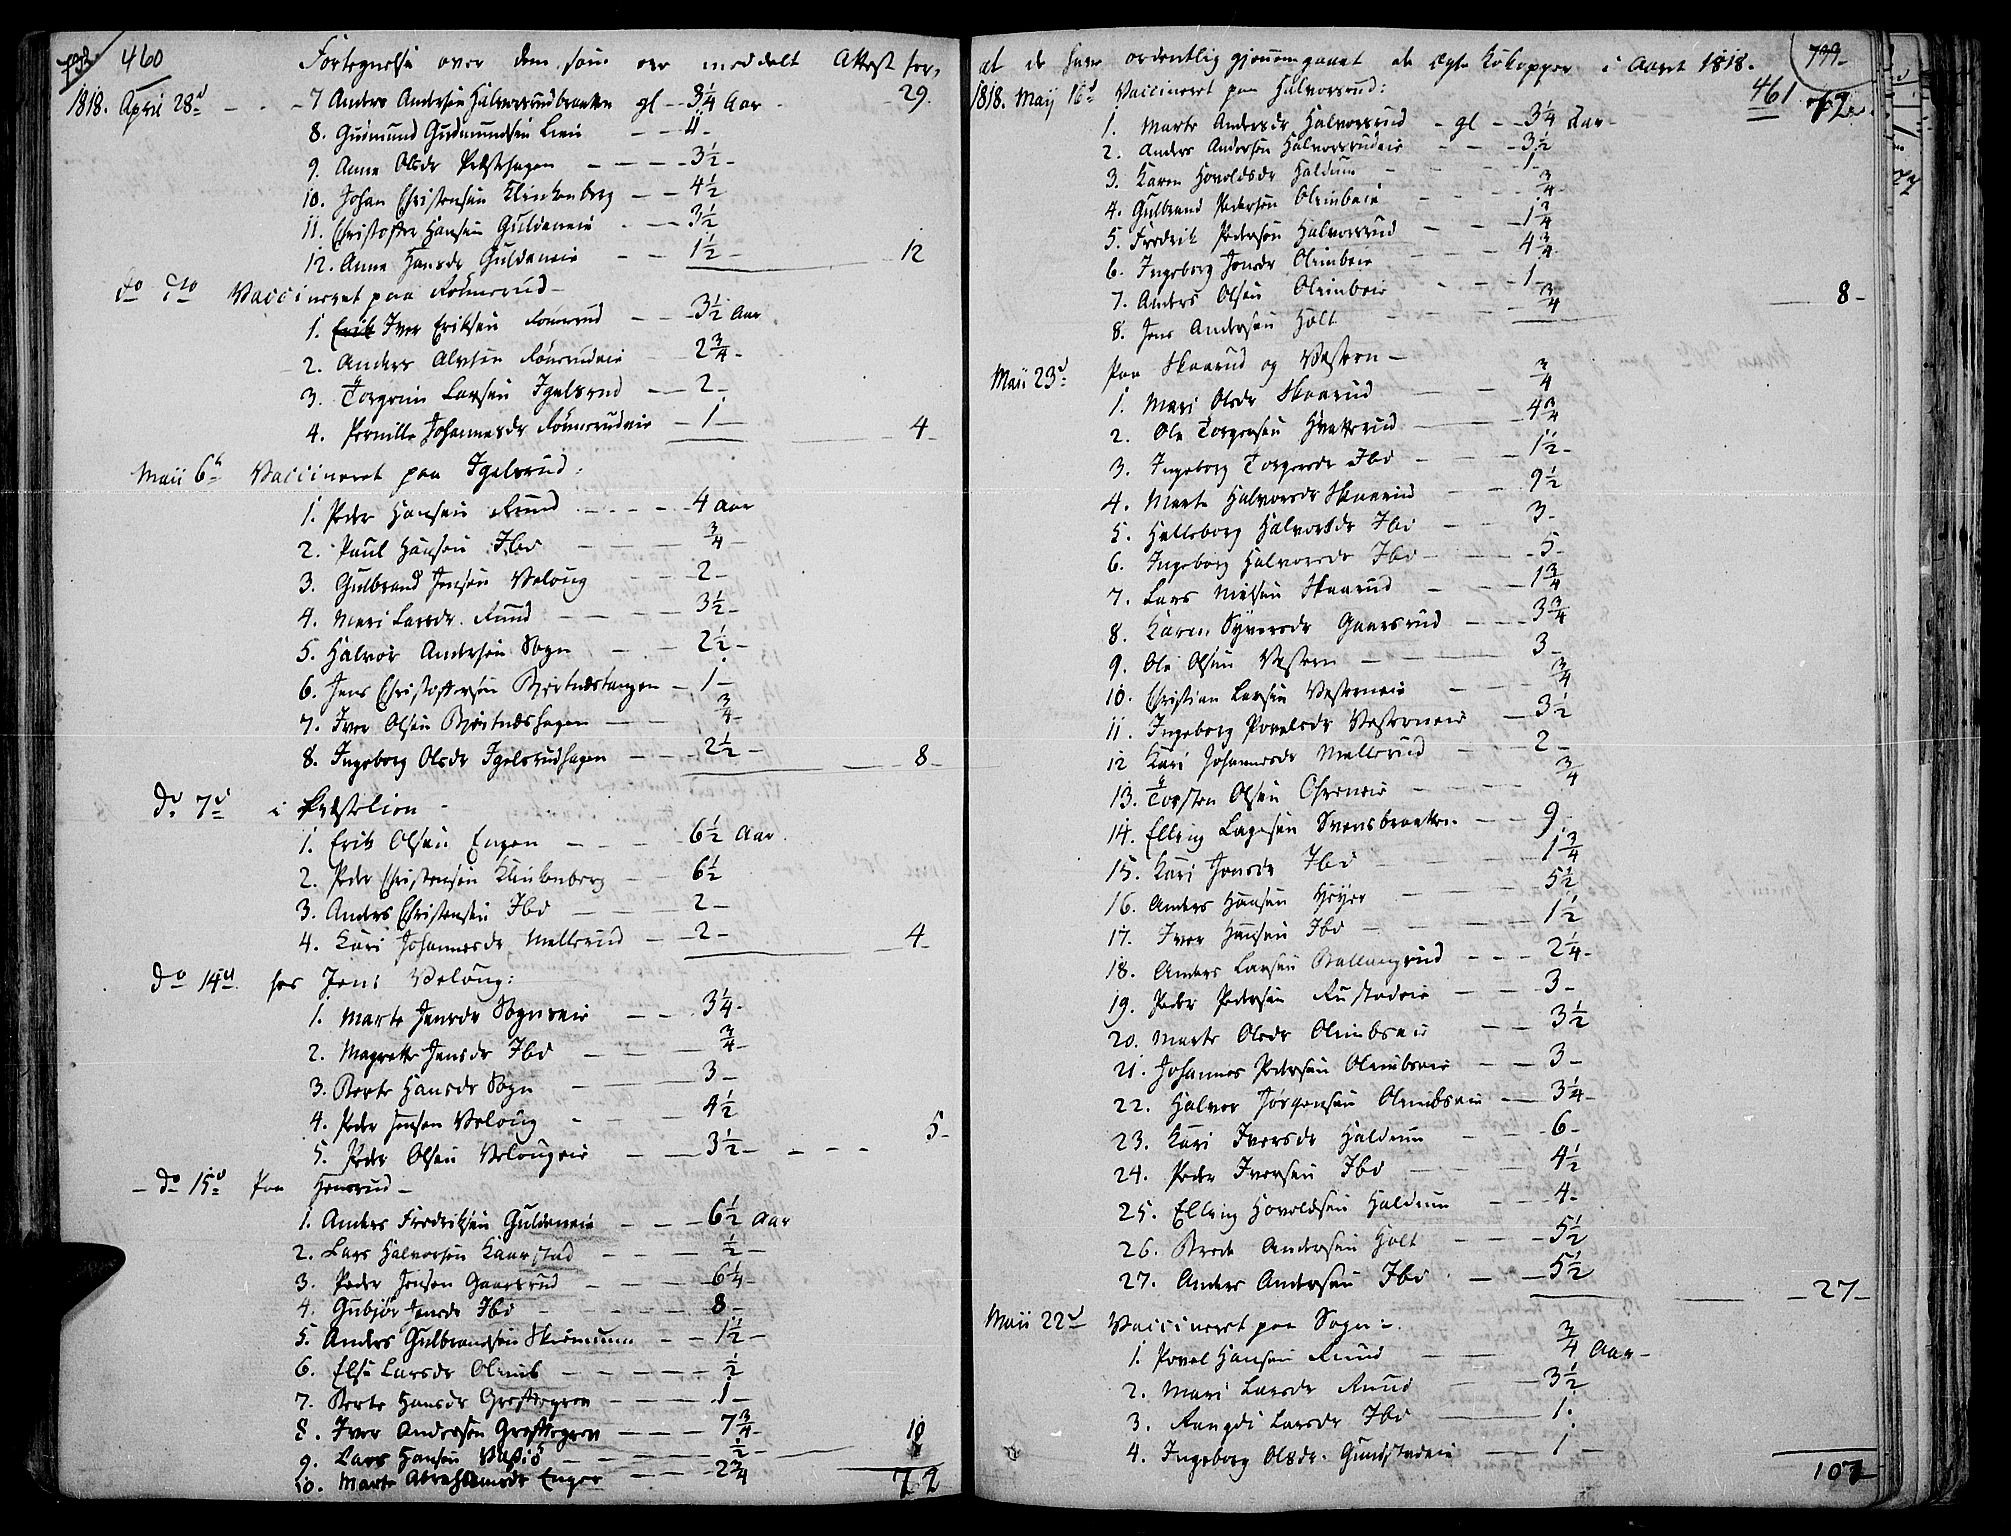 460
Fortegnelse over dem som er meddelt Attest for,
1818. April 28d 7 Anders Andersen Halvorsrudbraaten gl 3 1/4 Aar 29.
8. Gudmund Gudmundsen Lien 4
9. Anne Olsdr Præstehagen 3 1/2
10. Johan Christensen Klinkenberg 4 1/2
11. Christoffer Hansen Guldeneie 3 1/2
12. Anne Hansdr Guldeneie 1 1/2 12
do do Vaccineret paa Rønnerud
1. Iver Eriksen Rønnerud 3 1/2 Aar
2. Anders Alvsen Rønnerudeie 2 3/4
3. Torgrim Larsen Igelsrud 2
4. Pernille Johannesdr Rønnerudeie 1 4
Maii 6te Vaccineret paa Igelsrud:
1. Peder Hansen Ruud 4 Aar
2. Paul Hansen Ibd 3/4
3. Gulbrand Jensen Veloug 2
4. Mari Larsdr. Ruud 3 1/2
5. Halvor Andersen Sogn 2 1/2
6. Jens Christoffersen Bjertnæstangen 1
7. Iver Olsen Bjertnæshagen 3/4
8. Ingeborg Olsdr Igelsrudhagen 2 1/2 8
do 7d i Præstelien
1. Erik Olsen Engen 6 1/2 Aar
2. Peder Christensen Klinkenberg 6 1/2
3. Anders Christensen Ibd 2
4. Kari Johannesdr Mellerud 2 4
do 14d hos Jens Veloug:
1. Marte Jensdr Sogneeie 3 1/4
2. Magrethe Jensdr Ibd 3/4
3. Berte Hansdr Sogn 3
4. Peder Jensen Veloug 4 1/2
5. Peder Olsen Velougeie 3 1/2 5
do 15d Paa Hensrud
1. Anders Fredriksen Guldeneie 6 1/2 Aar
2. Lars Halvorsen Kaarstad 1/2
3. Peder Jensen Gaarsrud 6 1/4
4. Gubjør Jensdr Ibd 8
5. Anders Gulbrandsen 1 1/2
6. Else Larsdr Olimb 1/2
7. Berte Hansdr Grøttegren 1
8. Iver Andersen Grøttegren 7 3/4 10
9. Lars Hansen 1/2
10. Marte Abrahamsdr Enger 2 3/4
72
at de have ordentlig gjennemgaaet de ægte Kokopper i Aaret 1818.
461
1818. Maij 16d Vaccineret paa Halvorsrud: 72
1. Marte Andersdr Halvorsrud gl 3 1/4 Aar
2. Anders Andersen Halvorsrudeie 3 1/2
3. Karen Hovoldsdr Haldum 1
4. Gulbrand Pedersen Olimbeie 3/4
5. Fredrik Pedersen Halvorsrud 1 3/4
6. Ingeborg Jensdr Olimbeie 4 3/4
7. Anders Olsen Olimbeie 1
8. Jens Andersen Holt 3/4 8
Maii 23d Paa Skaarud og Vestern
1. Mari Olsdr Skaarud 3/4
2. Ole Torgersen Hvatterud 4 3/4
3. Ingeborg Torgersdr Ibd 1 1/2
4. Marte Halvorsdr Skaarud 9 1/2
5. Helleborg Halvorsdr Ibd 3
6. Ingeborg Halvorsdr Ibd 5
7. Lars Nielsen Skaarud 1 3/4
8. Karen Syversdr Gaarsrud 3 3/4
9. Ole Olsen Vestern 3
10. Christian Larsen Vesterneie 3/4
11. Ingeborg Povelsdr Vesterneie 3 1/2
12 Kari Johannesdr Mellerud 2
13. Torsten Olsen 3/4
14. Elling Lagesen Svensbraaten 9
15. Kari Jensdr Ibd 1 3/4
16. Anders Hansen Høyer 5 1/2
17. Iver Hansen Ibd 1 1/2
18. Anders Larsen Ballangrud 2 1/4
19. Peder Pedersen Rustadeie 3
20. Marte Olsdr Olimbseie 3 1/2
21. Johannes Pedersen Olimbseie 3
22. Halvor Jørgensen Olimbseie 3 1/4
23. Kari Iversdr Haldum 6
24. Peder Iversen Ibd 4 1/2
25. Elling Hovoldsen Haldum 4
26. Brede Andersen Holt 5 1/2
27. Anders Andersen Ibd 5 1/2 27
Maii 22d Vaccineret paa Sogn:
1. Povel Hansen Ruud 3/4 Aar
2. Mari Larsdr Ruud 3 1/2
3. Rangdi Larsdr Ibd 1
4. Ingeborg Olsdr. Gundstadeie 1
107